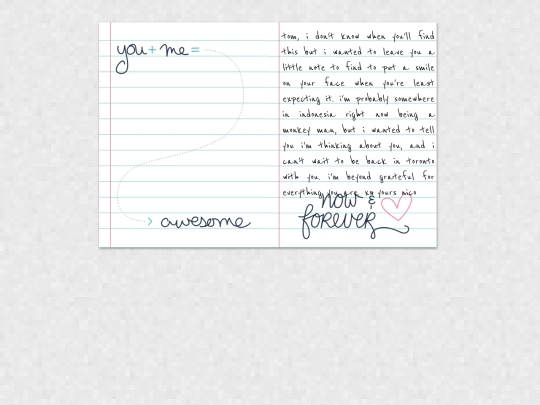 you + me =
> awesome
tom, i don't know when you'll find
this but i wanted to leave you a
little note to find to put a smile
on your face when you're least
expecting it. i'm probably somewhere
in indonesia right now being a
monkey man, but i wanted to tell
you i'm thinking about you, and i
can't wait to be back in toronto
with you. i'm beyond grateful for
everything you are xx yours nico
now &
forever